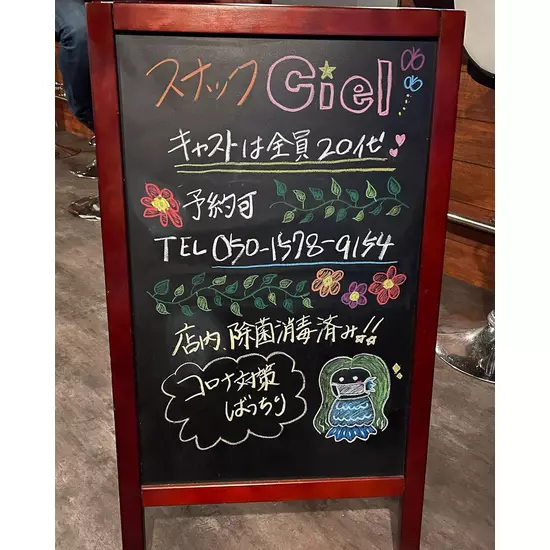 スナック Ciel
キャストは全員20代
予約可
TEL 050-1578-9154
店内、除菌消毒済み!!
コロナ対策
ばっちり